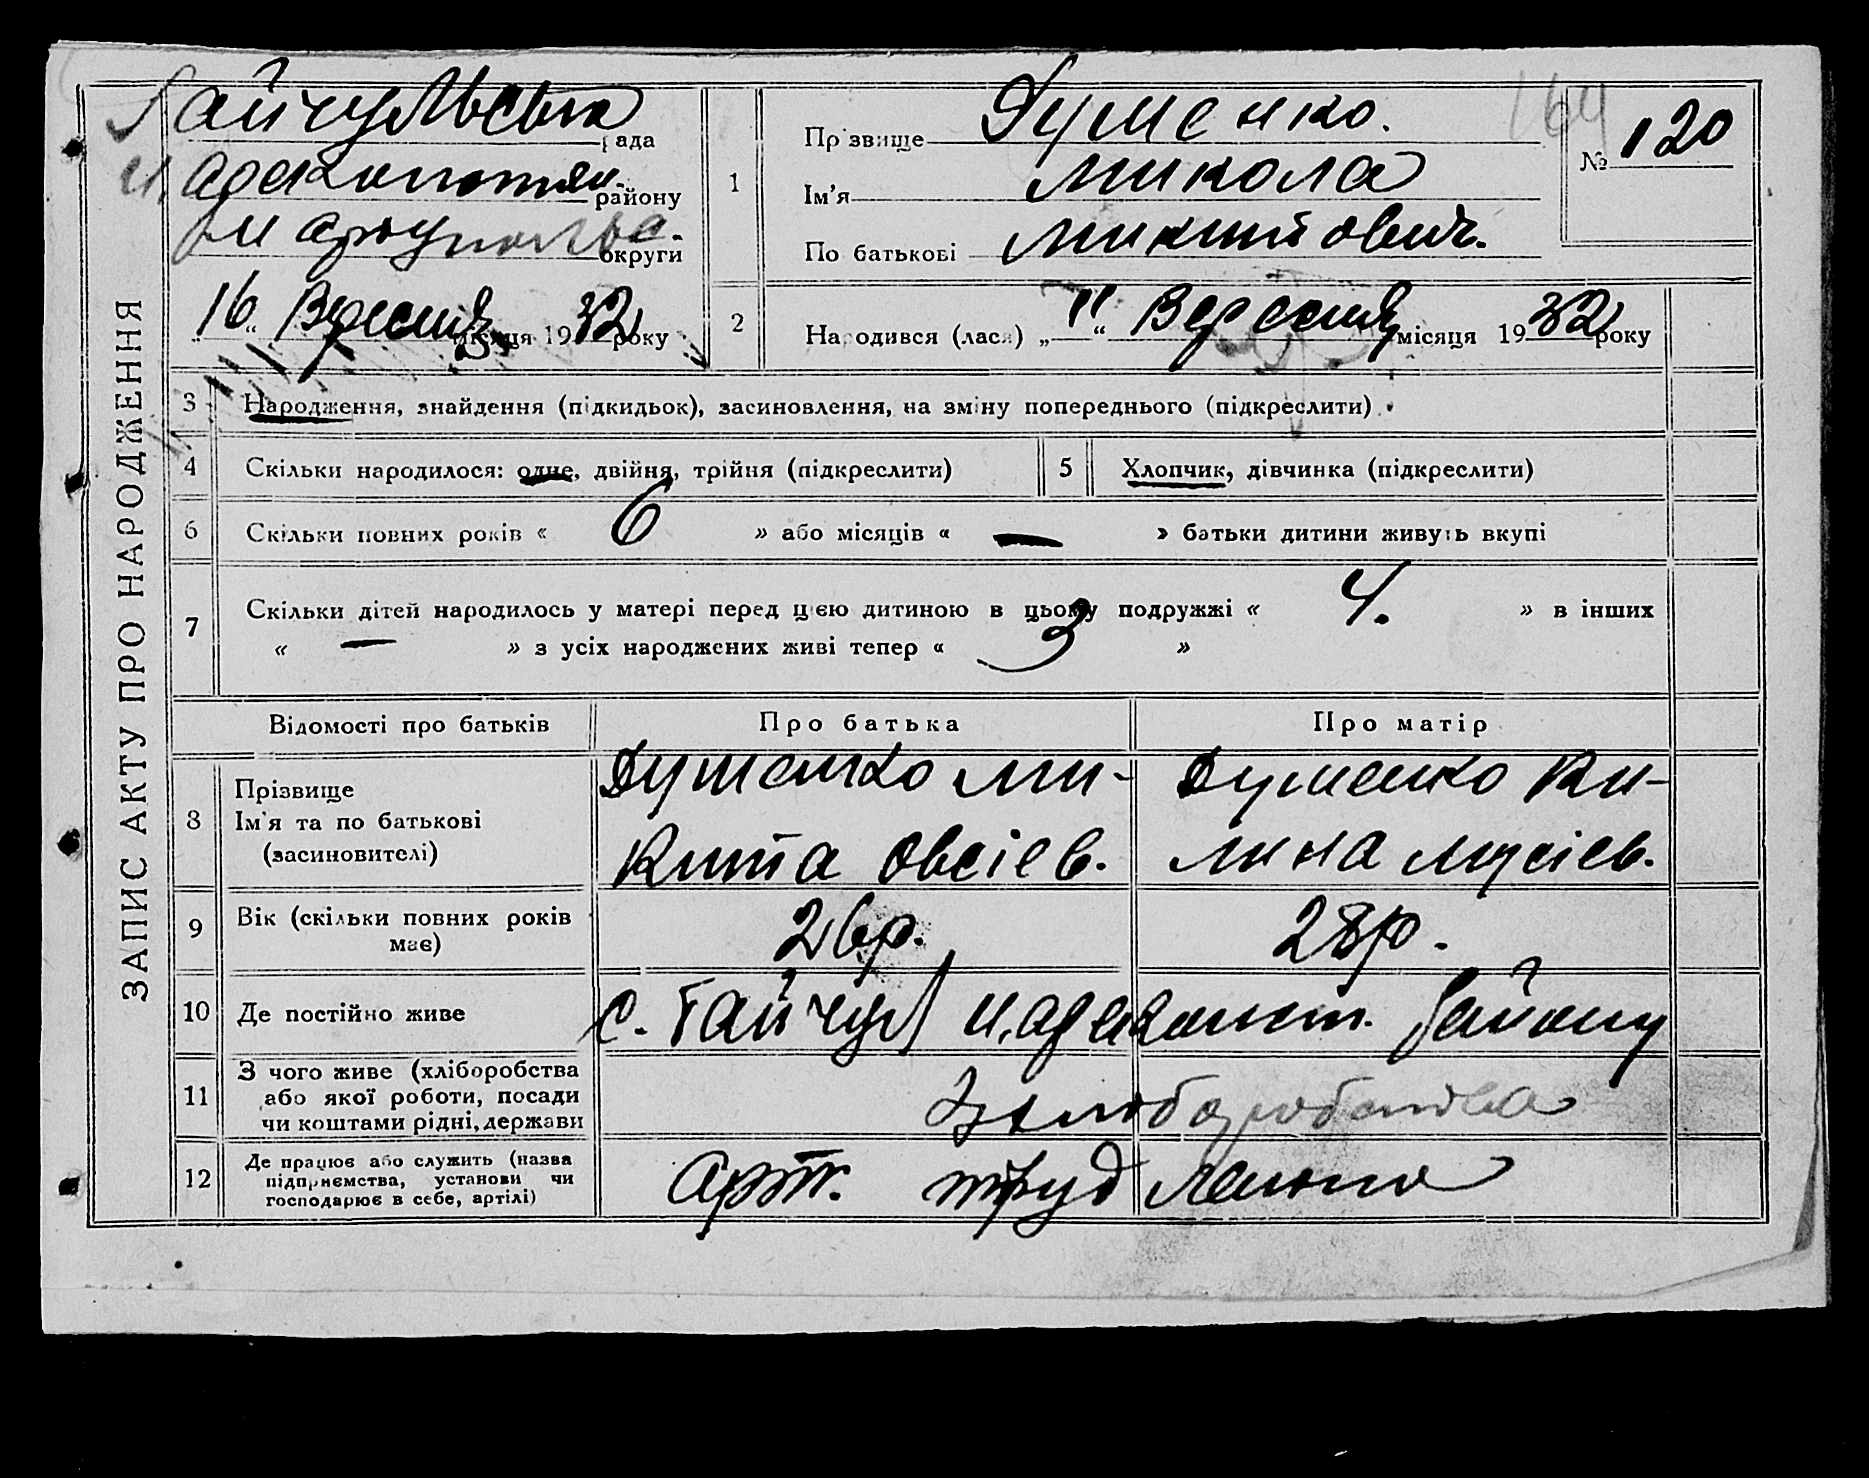 ЗАПИС АКТУ ПРО НАРОДЖЕННЯ
Гайчульська рада
району
округи
„16“ Вересня місяця 1932 року
1
Прізвище Думенко.
Ім’я Микола
По батькові Микитович.
164
№ 120
2
Народився (лася) „11“ Вересня місяця 1932 року
3 Народження, знайдення (підкидьок), засиновлення, на зміну попереднього (підкреслити)
4 Скільки народилося: одне, двійня, трійня (підкреслити)
5 Хлопчик, дівчинка (підкреслити)
6 Скільки повних років « 6 » або місяців « — » батьки дитини живуть вкупі
7 Скільки дітей народилось у матері перед цією дитиною в цьому подружжі « 4. » в інших
« — » з усіх народжених живі тепер « 3 »
Відомості про батьків Про батька Про матір
8 Прізвище
Ім’я та по батькові
(засиновителі)
Думенко Ми-
кита Овсіев.
Думенко Ки-
лина Мусіев.
9 Вік (скільки повних років
має)
26р. 28р.
10 Де постійно живе с. Гайчул району
11 З чого живе (хліборобства
або якої роботи, посади
чи коштами рідні, держави
З хліборобства
12 Де працює або служить (назва
підприємства, установи чи
господарює в себе, артілі)
Арт. труд Леніна